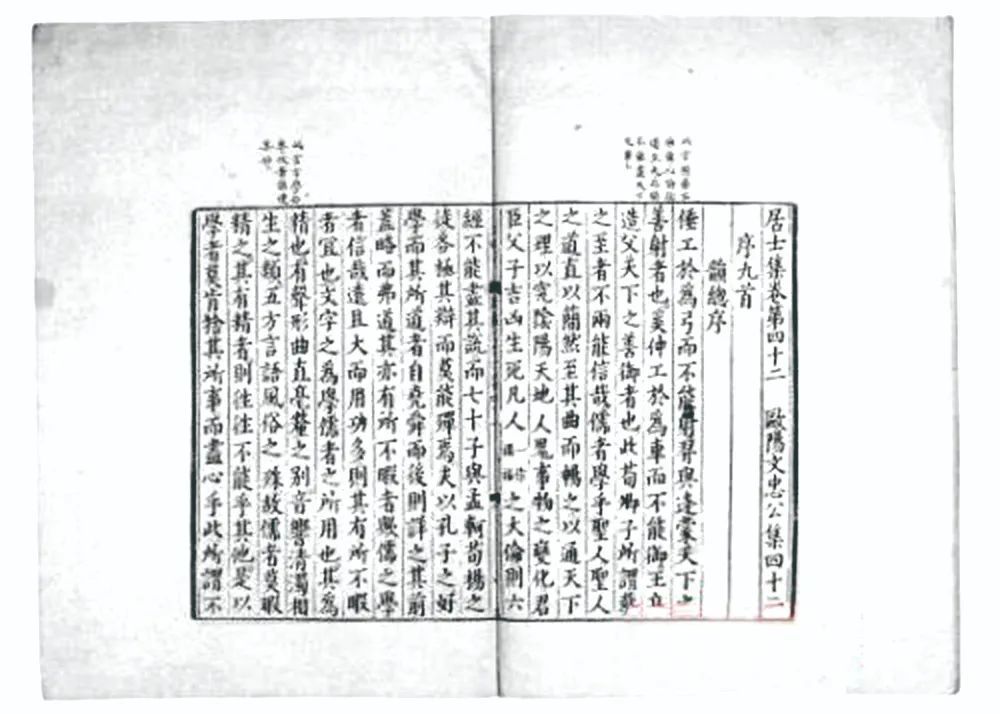 居士集卷第四十二　歐陽文忠公集四十二
序九首
韻總序
倕工於為弓而不能射羿與逢蒙天下之
善射者也奚仲工於為車而不能御王良
造父天下之善御者也此荀卿子所謂藝
之至者不兩能信哉儒者學乎聖人聖人
之道直以簡然至其曲而暢之以通天下
之理以究陰陽天地人鬼事物之變化君
臣父子吉凶生死凡人之大倫則六
經不能盡其說而七十子與孟軻荀楊之
徒各極其辯而莫能殫焉夫以孔子之好
學而其所道者自堯舜而後則詳之其前
蓋略而弗道其亦有所不暇者與儒之學
者信哉遠且大而用功多則其有所不暇
者宜也文字之為學儒者之所用也其為
精也有聲形曲直毫釐之別音響清濁相
生之類五方言語風俗之殊故儒者莫暇
精之其有精者則往往不能乎其他是以
學者莫肯捨其所事而盡心乎此所謂不